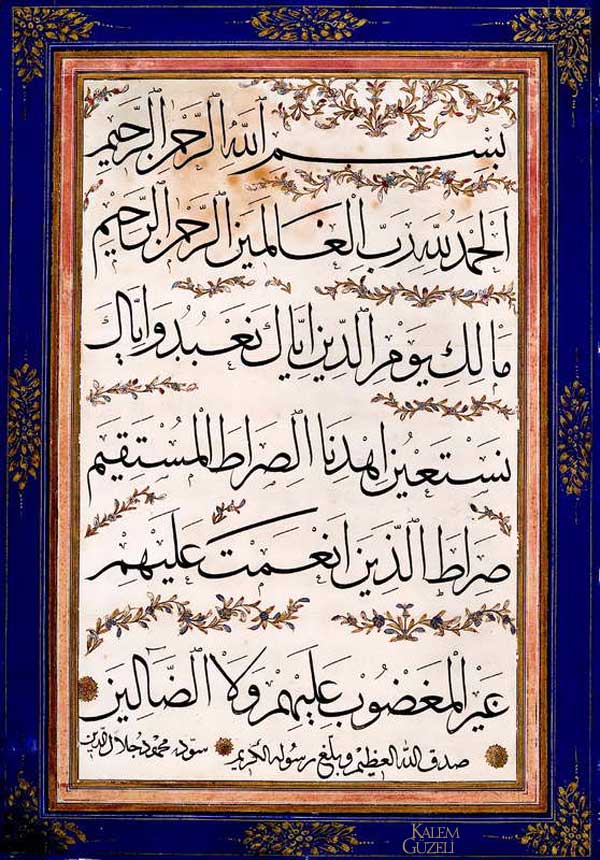 بسم الله الرحمن الرحيم
الحمد لله رب العالمين الرحمن الرحيم
مالك يوم الدين اياك نعبد واياك
نستعين اهدنا الصراط المستقيم
صراط الذين انعمت عليهم
غير المغضوب عليهم ولا الضالين
صدق الله العظيم وبلغ رسوله الكريم سوده محمود جلال الدين
KALEM
GÜZELİ